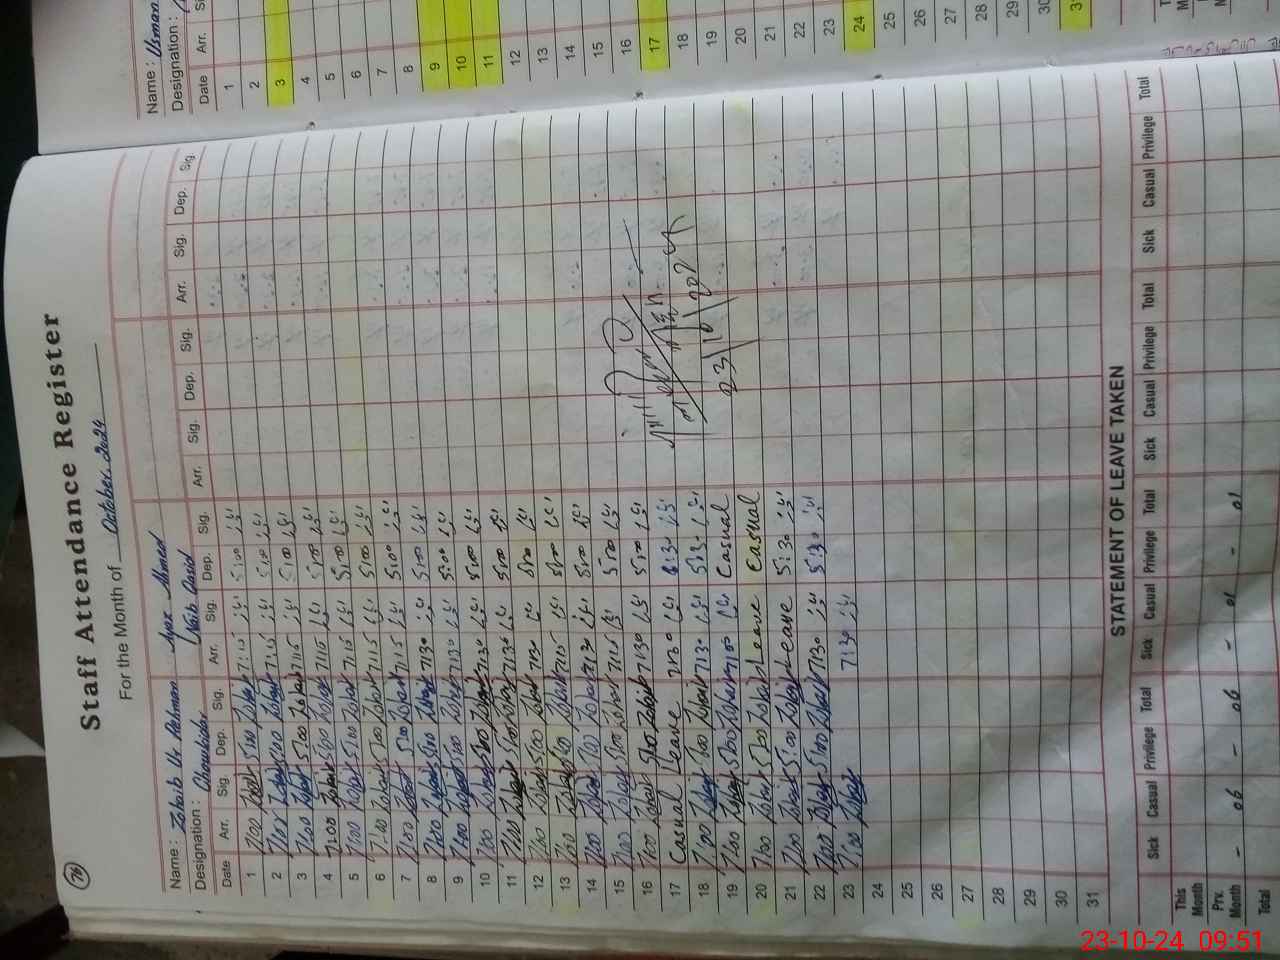 76
Staff Attendance Register
For the Month of October, 2024
Name : Zohaib Ur Rehman Ayaz Ahmed
Designation : Chowkidar Naib Qasid
Date Arr. Sig. Dep. Sig. Arr. Sig. Dep. Sig. Arr. Sig. Dep. Sig. Arr. Sig. Dep. Sig
1 7:00 Zohaib 5:00 Zohaib 7:15 5:00
2 7:00 Zohaib 5:00 Zohaib 7:15 5:00
3 7:00 Zohaib 5:00 Zohaib 7:15 5:00
4 7:00 Zohaib 5:00 Zohaib 7:15 5:00
5 7:00 Zohaib 5:00 Zohaib 7:15 5:00
6 7:00 Zohaib 5:00 Zohaib 7:15 5:00
7 7:00 Zohaib 5:00 Zohaib 7:15 5:00
8 7:00 Zohaib 5:00 Zohaib 7:30 5:00
9 7:00 Zohaib 5:00 Zohaib 7:30 5:00
10 7:00 Zohaib 5:00 Zohaib 7:30 5:00
11 7:00 Zohaib 5:00 Zohaib 7:30 5:00
12 7:00 Zohaib 5:00 Zohaib 5:00
13 7:00 Zohaib 5:00 Zohaib 7:15 5:00
14 7:00 Zohaib 5:00 Zohaib 7:30 5:00
15 7:00 Zohaib 5:00 Zohaib 7:15 5:00
16 7:00 Zohaib 5:00 Zohaib 7:30 5:00
17 Casual Leave 7:30
18 7:00 Zohaib 5:00 Zohaib 7:30 5:30
19 7:00 Zohaib 5:00 Zohaib 7:00 Casual
20 7:00 Zohaib 5:00 Zohaib Leave Casual
21 7:00 Zohaib 5:00 Zohaib Leave 5:30
22 7:00 Zohaib 5:00 Zohaib 7:30 5:30
23 7:00 Zohaib 7:30
24
25
26
27
28
29
30
31
23/10/2024
STATEMENT OF LEAVE TAKEN
Sick Casual Privilege Total Sick Casual Privilege Total Sick Casual Privilege Total Sick Casual Privilege Total
This Month
Prv. Month - 06 - 06 - 01 - 01
Total
Name : Usman
Designation :
Date Arr.
1
2
3
4
5
6
7
8
9
10
11
12
13
14
15
16
17
18
19
20
21
22
23
24
25
26
27
28
29
30
23-10-24 09:51